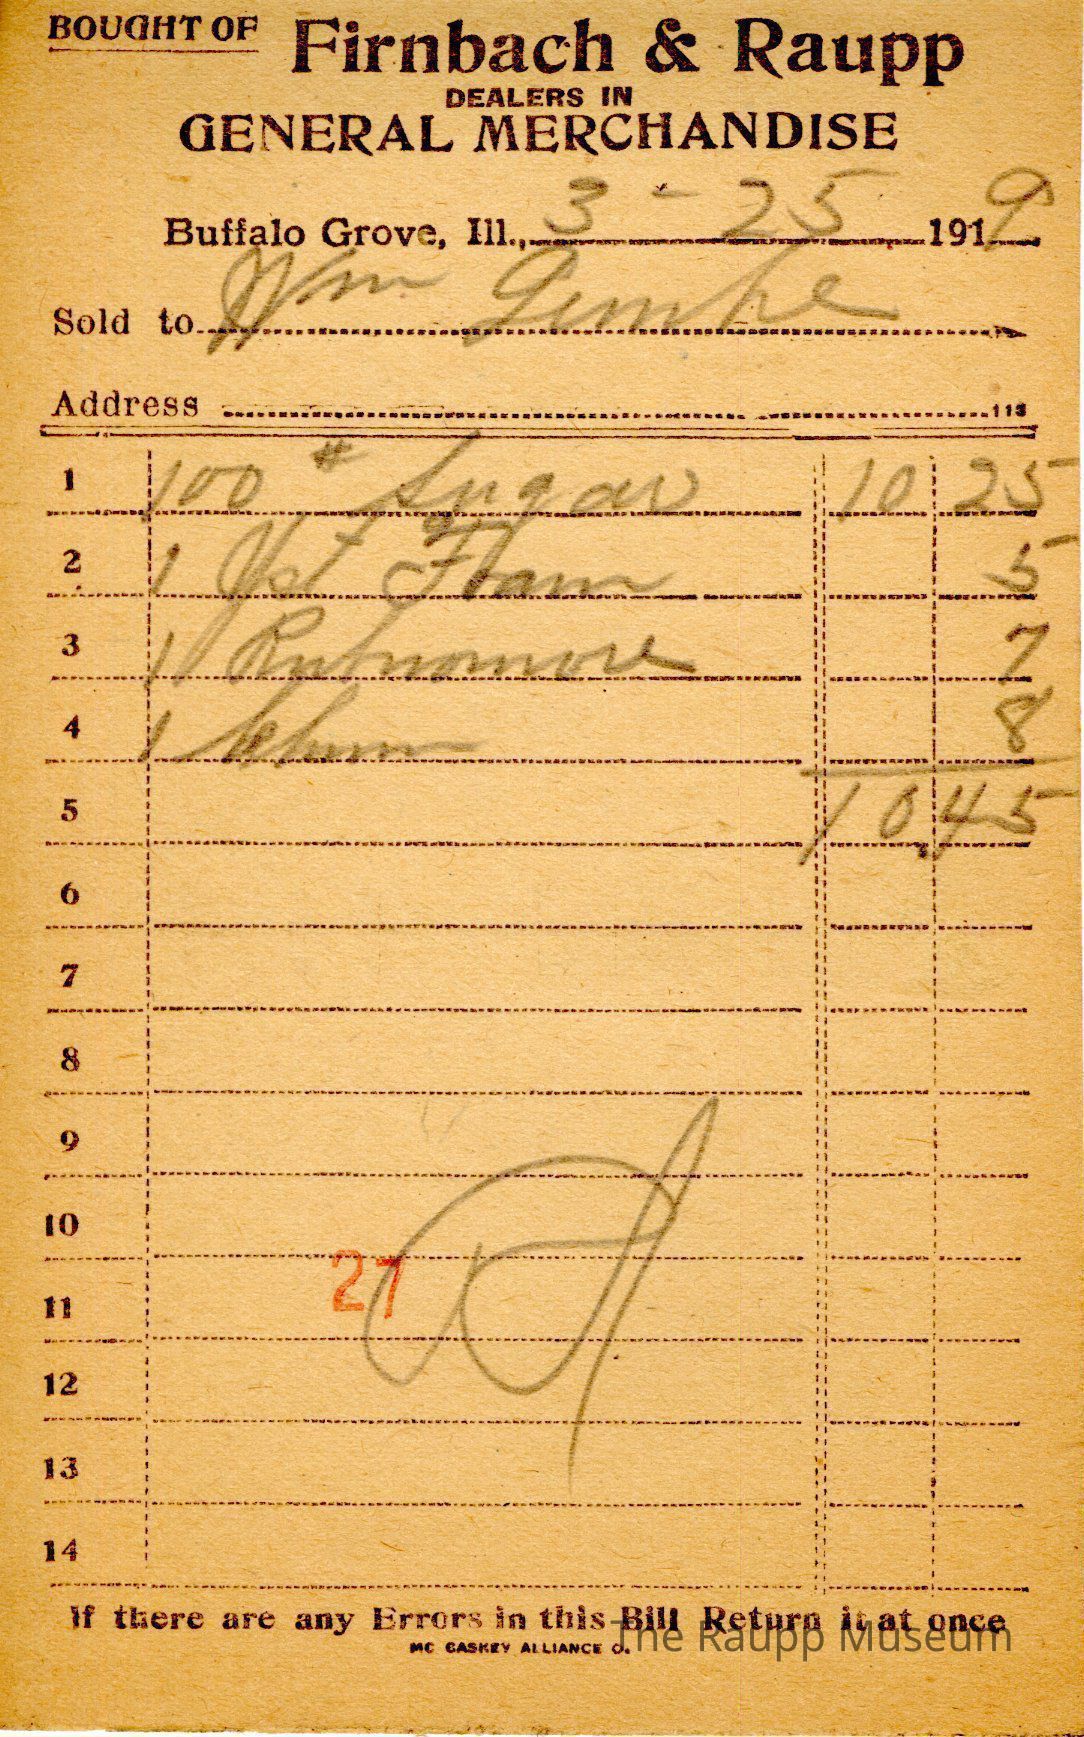 BOUGHT OF Firnbach & Raupp
DEALERS IN
GENERAL MERCHANDISE
Buffalo Grove, Ill., 3 - 25 1919
Sold to Wm
Address 113
1 100 # Sugar 10 25
2 1 Yst Foam 5
3 1 Rubnomore 7
4 1 8
5 10.45
6
7
8
9
10
27
11
12
13
14
If there are any Errors in this Bill Return it at once
MC CASKEY ALLIANCE O.
The Raupp Museum